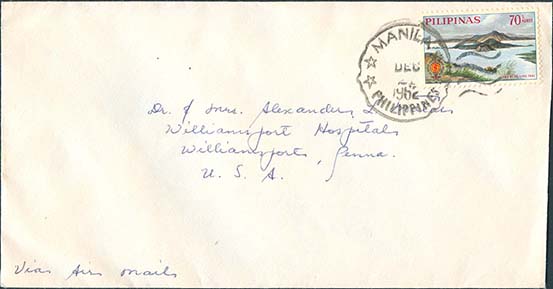 PILIPINAS 70
MANILA
DEC
1962
PHILIPPINES
Dr. & Mrs. Alexander
Williamsport Hospital
Williamsport, Penna.
U. S. A.
Via Air Mail